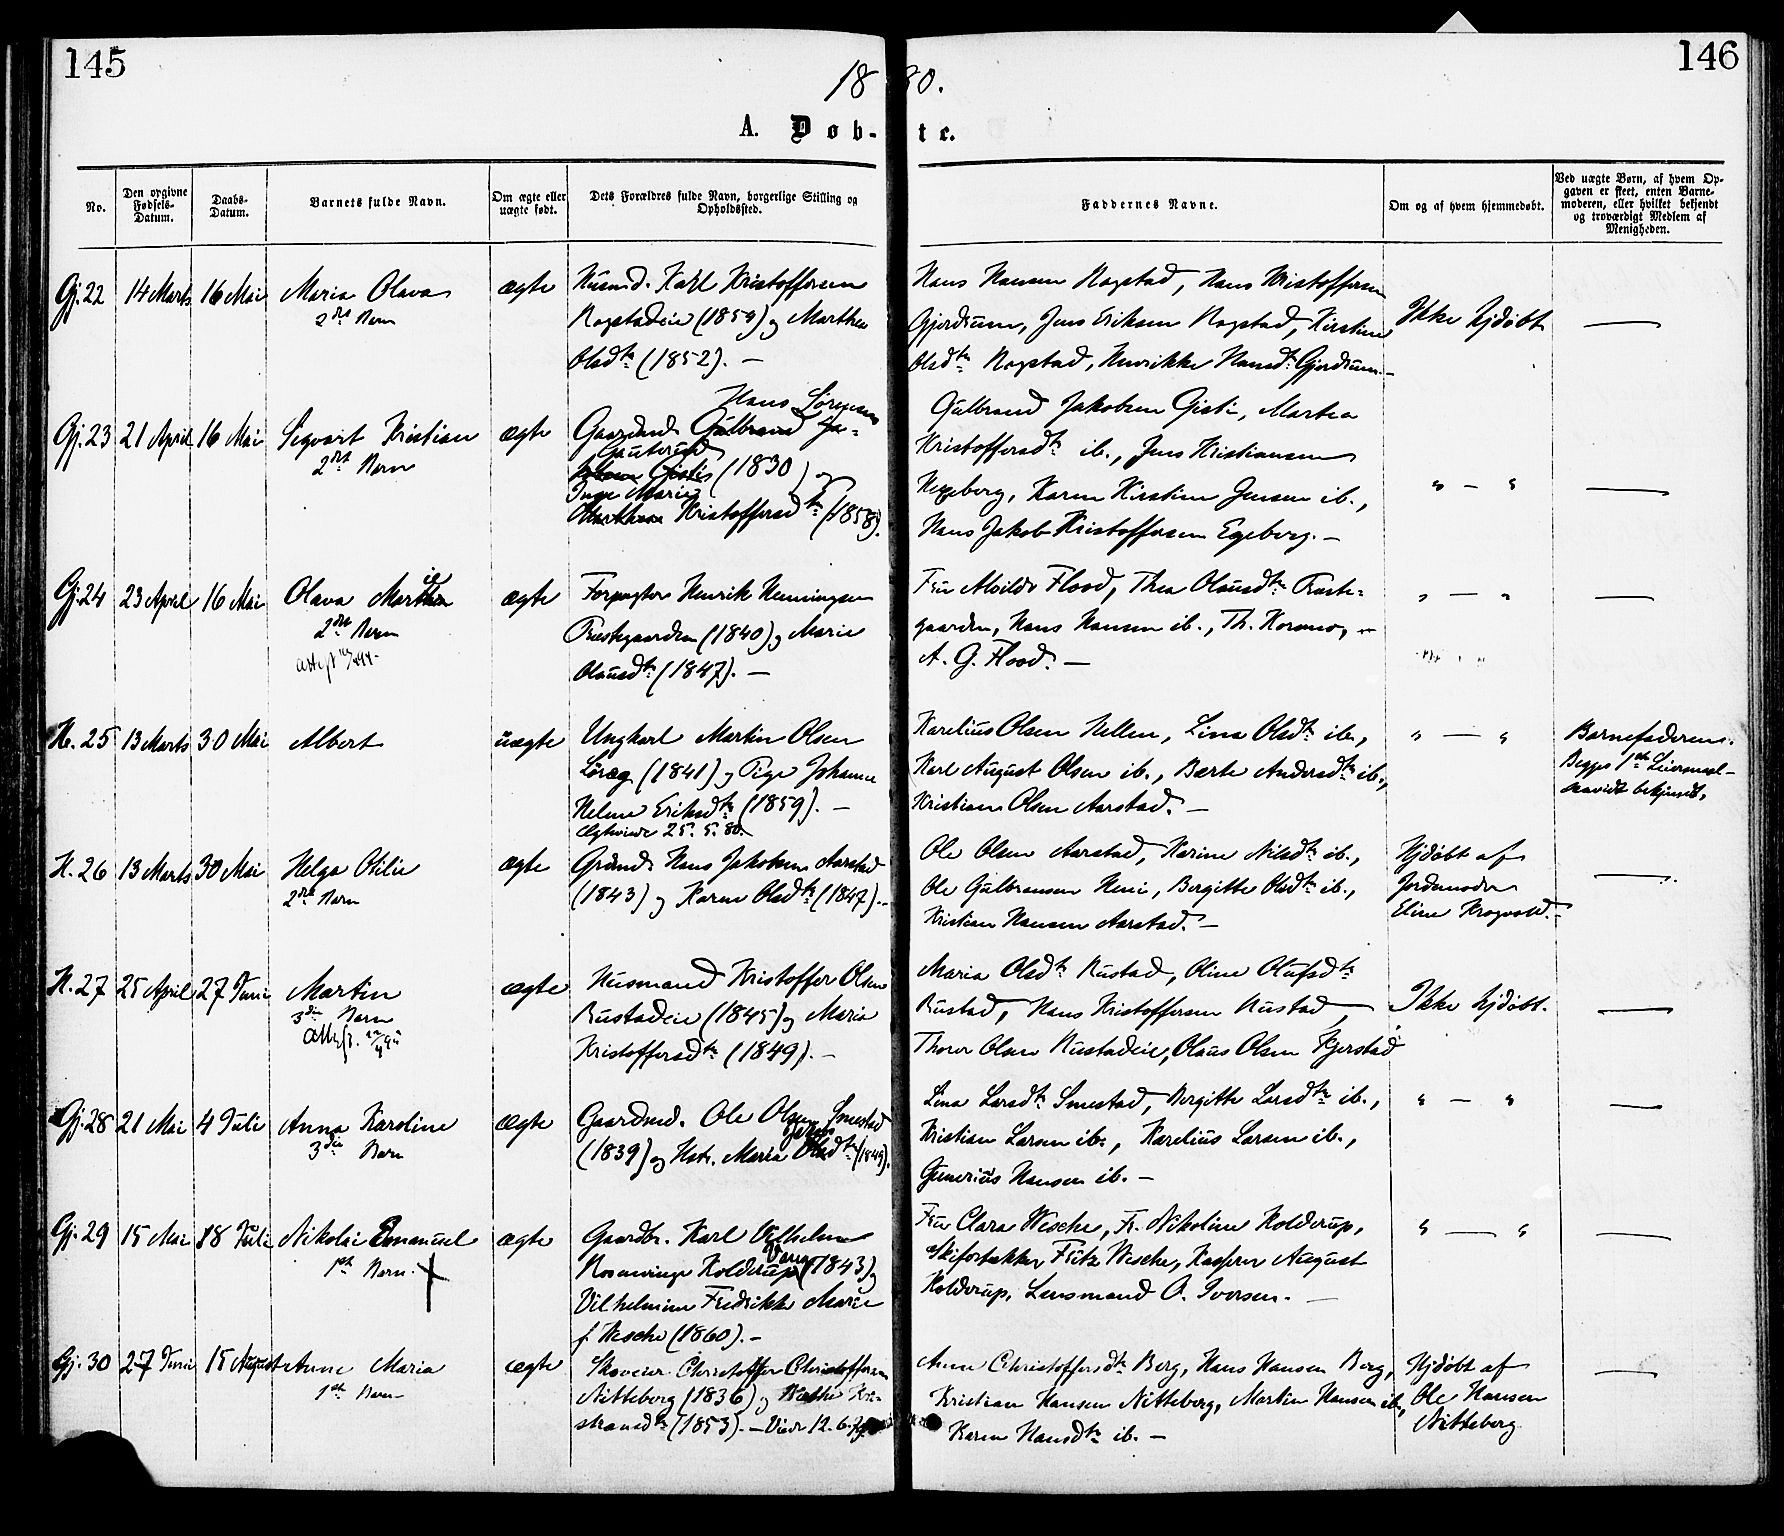 145
146
18 80.
A. Døb- te.
No.
Den opgivne Fødsels-Datum.
Daabs-Datum.
Barnets fulde Navn.
Om ægte eller uægte født.
Dets Forældres fulde Navn, borgerlige Stilling og Opholdssted.
Faddernes Navne.
Om og af hvem hjemmedøbt.
Ved uægte Børn, af hvem Opgaven er skeet, enten Barnemoderen, eller hvilket bekjendt og troværdigt Medlem af Menigheden.
Gj. 22 14 Marts 16 Mai Maria Olava ægte
2det Barn
Husmd. Karl Kristoffersen
Rogstadeie (1859) og Marthea
Olsdtr (1852). —
Hans Hansen Rogstad, Hans Kristoffersen
Gjerdrum, Jens Eriksen Rogstad, Kirstine
Olsdtr Rogstad, Henrikke Hansdtr Gjerdrum. —
Ikke hjdøbt
—
Gj. 23 21 April 16 Mai Sigvart Kristian ægte
2det Barn
Hans Sørensen
Gaardmd. Gulbrand Ja=
Gauterud
kobsen Gisti (1830) og
Inge Marie
Marthea Kristoffersdtr (1858).
Gulbrand Jakobsen Gisti, Martea
Kristoffersdtr ib., Jens Kristiansen
Hexeberg, Karen Kirstine Jensen ib.,
Hans Jakob Kristoffersen Egeberg. —
„ — „
—
Gj. 24 23 April 16 Mai Olava Marthea ægte
ie
2det Barn
Forpagter Henrik Henningsen
Præstegaarden (1840) og Marie
Olausdtr (1847). —
Fru Alvilde Flood, Thea Olausdtr Præste=
gaarden, Hans Hansen ib., Th. Horomo,
A. G. Flood. —
„ — „
—
H. 25 13 Marts 30 Mai Albert uægte
Ungkarl Martin Olsen
Løreg (1841) og Pige Johanne
Helene Eriksdtr (1859). —
Ægteviede 25. 5. 80.
Karelius Olsen Hellen, Lina Olsdtr ib.,
Karl August Olsen ib., Berte Andersdtr ib.,
Kristian Olsen Aarstad. —
„ — „
Barnefaderen.
Begges 1ste Leiermaal
saavidt bekjendt.
H. 26 13 Marts 30 Mai Helga Otilie ægte
2det Barn
Grdmd. Hans Jakobsen Aarstad
(1843) og Karen Olsdtr (1847). —
Ole Olsen Aarstad, Karine Nilsdtr ib.,
Ole Gulbransen Henie, Bergitte Olsdtr ib.,
Kristian Hansen Aarstad. —
Hjdøbt af
Jordemoder
Eline Krogvold. —
—
H. 27 25 April 27 Juni Martin ægte
3die Barn
Husmand Kristoffer Olsen
Rustadeie (1845) og Maria
Kristoffersdtr (1849). —
Maria Olsdtr Rustad, Oline Olufsdtr
Rustad, Hans Kristoffersen Rustad,
Thorer Olsen Rustadeie, Olaus Olsen Kjerstad
Ikke hjdøbt.
—
Gj. 28 21 Mai 4 Juli Anna Karoline ægte
3die Barn
Gaardmd. Ole Olsen Smestad
(1839) og Hst. Maria Olsdtr (1849).
Lina Larsdtr Smestad, Bergitte Larsdtr ib.,
Kristian Larsen ib., Karelius Larsen ib.,
Gunerius Hansen ib. —
„ — „
—
Gj. 29 15 Mai 18 Juli Nikolai Emanuel ægte
1ste Barn.
Gaardbr. Karl Vilhelm
Rosenvinge Kolderup (1843) og
Vilhelmine Fredrikke Marie
f. Wesche (1860). —
Fru Clara Wesche, Fr. Nikoline Kolderup,
Skifortakker Fritz Wesche, Kasserer August
Kolderup, Lensmand O. Iversen. —
„ — „
—
Gj. 30 27 Juni 15 August Anne Maria ægte
1ste Barn
Skoveier Christoffer Christoffersen
Nitteberg (1836) og Kri=
stiansdtr (1853). — Viede 12. 6.
Anne Christoffersdtr Berg, Hans Hansen Berg,
Kristian Hansen Nitteberg, Martin Hansen ib.,
Karen Hansdtr ib. —
Hjdøbt af
Ole Hansen
Nitteberg
—